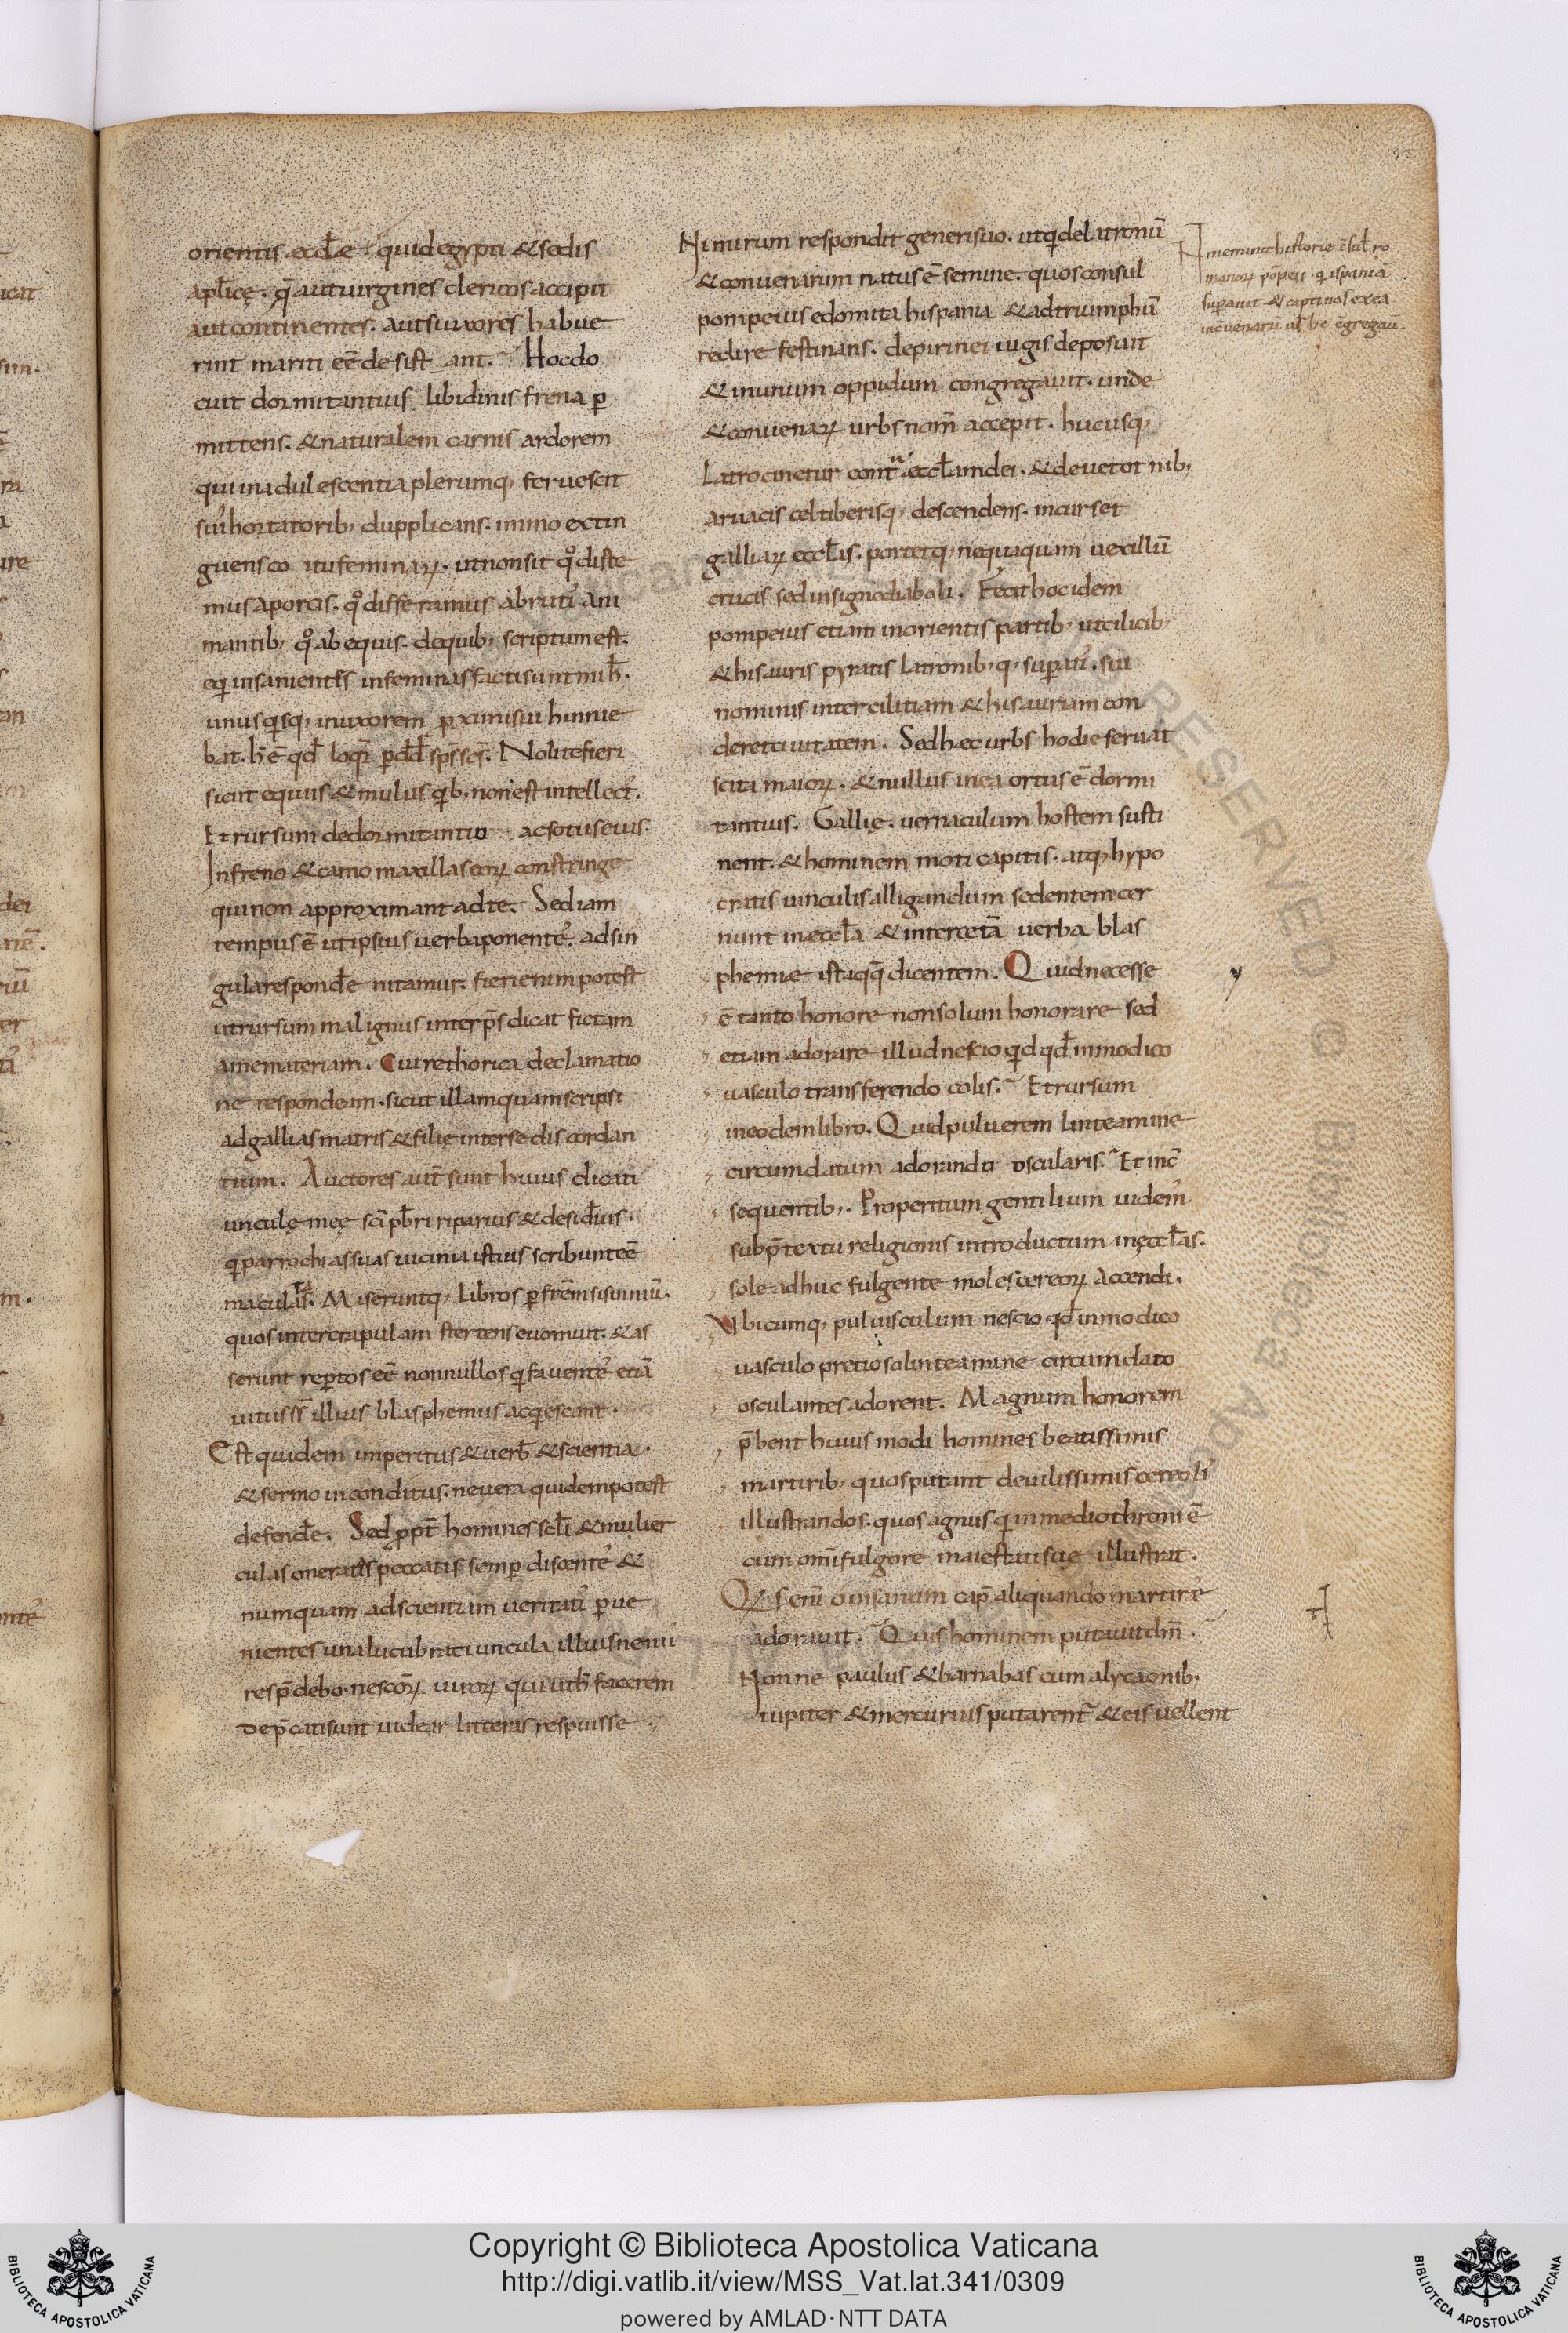 orientis eccl̄ae? quid egypti & sedis
apl̄icę. q̄ aut uirgines clericos accipit
aut continentes. aut si uxores habue
rint mariti eē desistant. Hoc do
cuit dormitantius libidini frena p̄
mittens. & naturalem carnis ardorem
qui in adulescentia plerumq; feruescit
suis hortatorib; dupplicans. immo extin
guens coitu feminaꝝ. ut non sit qͦ diste
mus a porcis. qͦ differamus a brutis ani
mantib; qͦ ab equis. de quib; scriptum est.
eq insanientes in feminas facti sunt mih̄.
unusqsq; in uxorem pximi sui hinnie
bat. h̄ ē qd̄ loqr̄ p dd̄ sps̄ scs̄. Nolite fieri
sicut equus & mulus qb; non est intellect'.
Et rursum de dormitantio ac sotiis eius.
In freno & camo maxillas eoꝝ constringe
qui non approximant ad te. Sed iam
tempus ē ut ipsius uerba ponentes. ad sin
gula respondere nitamur. fieri enim potest
ut rursum malignus interp̄s dicat fictam
a me materiam. Cui rethorica declamatio
ne respondeam. sicut illam quam scripsi
ad gallias matris & filię inter se discordan
tium. Auctores aut̄ sunt huius dictati
unculę meę sc̄i pb̄ri riparius & desid̄ius.
q parrochias suas uicinia istius scribunt eē
maculatas. Miseruntq; libros p frēm sisinniū.
quos inter crapulam stertens euomuit. & as
serunt rep̄tos eē nonnullos q fauentes etiā
uitiis illius blasphemiis acqescant.
Est quidem imperitus & uerb̄ & scientia.
& sermo inconditus. ne uera quidem potest
defendere. Sed ppt̄ homines scl̄i & mulier
culas oneratas peccatis semp discentes &
numquam ad scientiam ueritatis perue
nientes una lucubratiuncula illius neniis
resp̄debo. ne sc̄oꝝ uiroꝝ qui ut h̄ facerem
dep̄cati sunt uidear litteras respuisse.
Nimirum respondit generi suo. ut q de latronū
& conuenarum natus ē semine. quos consul
pompeius edomita hispania & ad triumphū
redire festinans. de pirinei iugis deposuit
& in unum oppidum congregauit. unde
& conuenaꝝ urbs nom̄ accepit. hucusq;
latrocinetur contra eccl̄am dei. & de uetotnib;
aruacis celtiberisq; descendens. incurset
galliaꝝ eccl̄as. portetq; nequaquam uexillū
crucis sed insigne diaboli. Fecit hoc idem
pompeius etiam in orientis partib; ut cilicib;
& hisauris pyratis latronib; q; supatis. sui
nominis inter ciliciam & hisauriam con
deret ciuitatem. Sed haec urbs hodie seruat
scita maioꝝ. & nullus in ea ortus ē dormi
tantius. Gallię. uernaculum hostem susti
nent. & hominem moti capitis. atq; hypo
cratis uinculis alligandum sedentem cer
nunt in eccl̄a & inter cetā uerba blas
phemie ista qq dicentem. Quid necesse
ē tanto honore non solum honorare sed
etiam adorare illud nescio qd qd̄ in modico
uasculo transferendo colis. Et rursum
in eodem libro. Quid puluerem linteamine
circumdatum adorando oscularis. Et inc̄
sequentib;. Prope ritum gentilium uidem'
sub p̄textu religionis introductum in eccl̄as.
sole adhuc fulgente moles cereoꝝ accendi.
Ubicumq; puluisculum nescio qd̄ in modico
uasculo pretioso linteamine circumdato
osculantes adorent. Magnum honorem
p̄bent huius modi homines beatissimis
martirib; quos putant de uilissimis cereolis
illustrandos. quos agnus q in medio throni ē
cum om̄i fulgore maiestatis suę illustrat.
Qs enī o insanum cap̄ aliquando martires
adorauit. Quis hominem putauit dm̄.
Nonne paulus & barnabas cum a lycaonib.
iupiter & mercurius putarent' & eis uellent
meminit historię c̄sul ro
manoꝝ pōpeii. q ispaniā
supauit & captiuos ex ea
in c̄uenarū urbe c̄gregau̅.
Copyright © Biblioteca Apostolica Vaticana
http://digi.vatlib.it/view/MSS_Vat.lat.341/0309
powered by AMLAD·NTT DATA
BIBLIOTECA APOSTOLICA VATICANA
BIBLIOTECA APOSTOLICA VATICANA